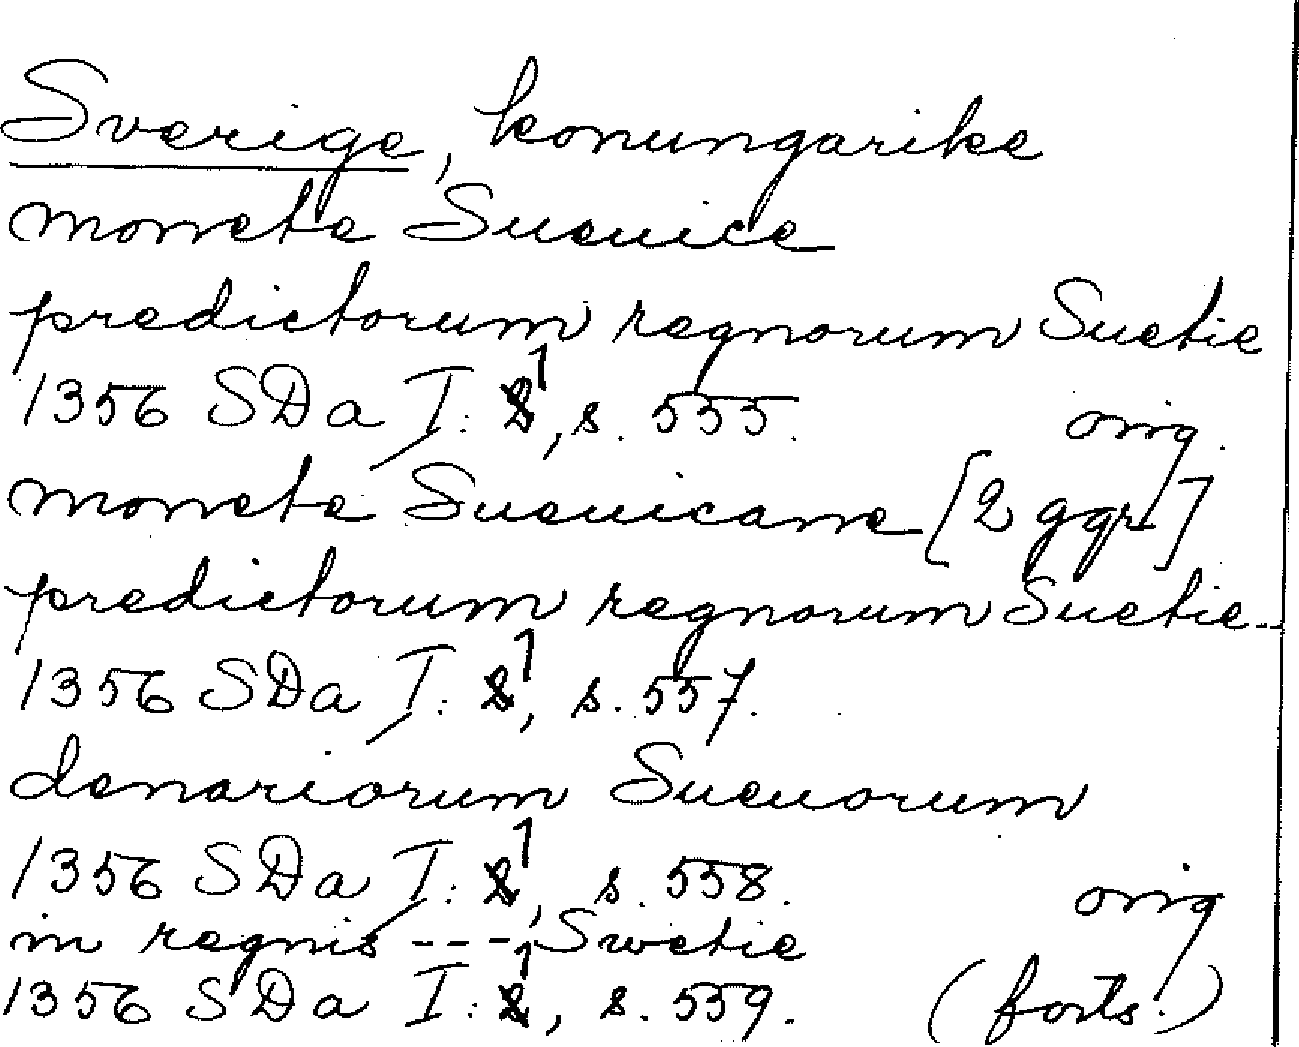 Sverige, konungarike
monete Sueuice
predictorum regnorum Suetie
1356 SDa I: 1, s. 555. orig.
monete Sueuicane [2 ggr]
predictorum regnorum Suetie
1356 SDa I: 1, s. 557.
denariorum Sueuorum
1356 SDa I: 1, s. 558. orig
in regnis --- Swetie
1356 SDa I: 1, s. 559. (forts.)